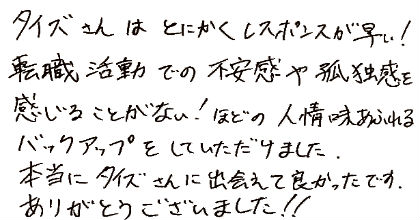 タイズさんはとにかくレスポンスが早い！
転職活動での不安感や孤独感を
感じることがない！ほどの人情味あふれる
バックアップをしていただけました.
本当にタイズさんに出会えて良かったです.
ありがとうございました!!